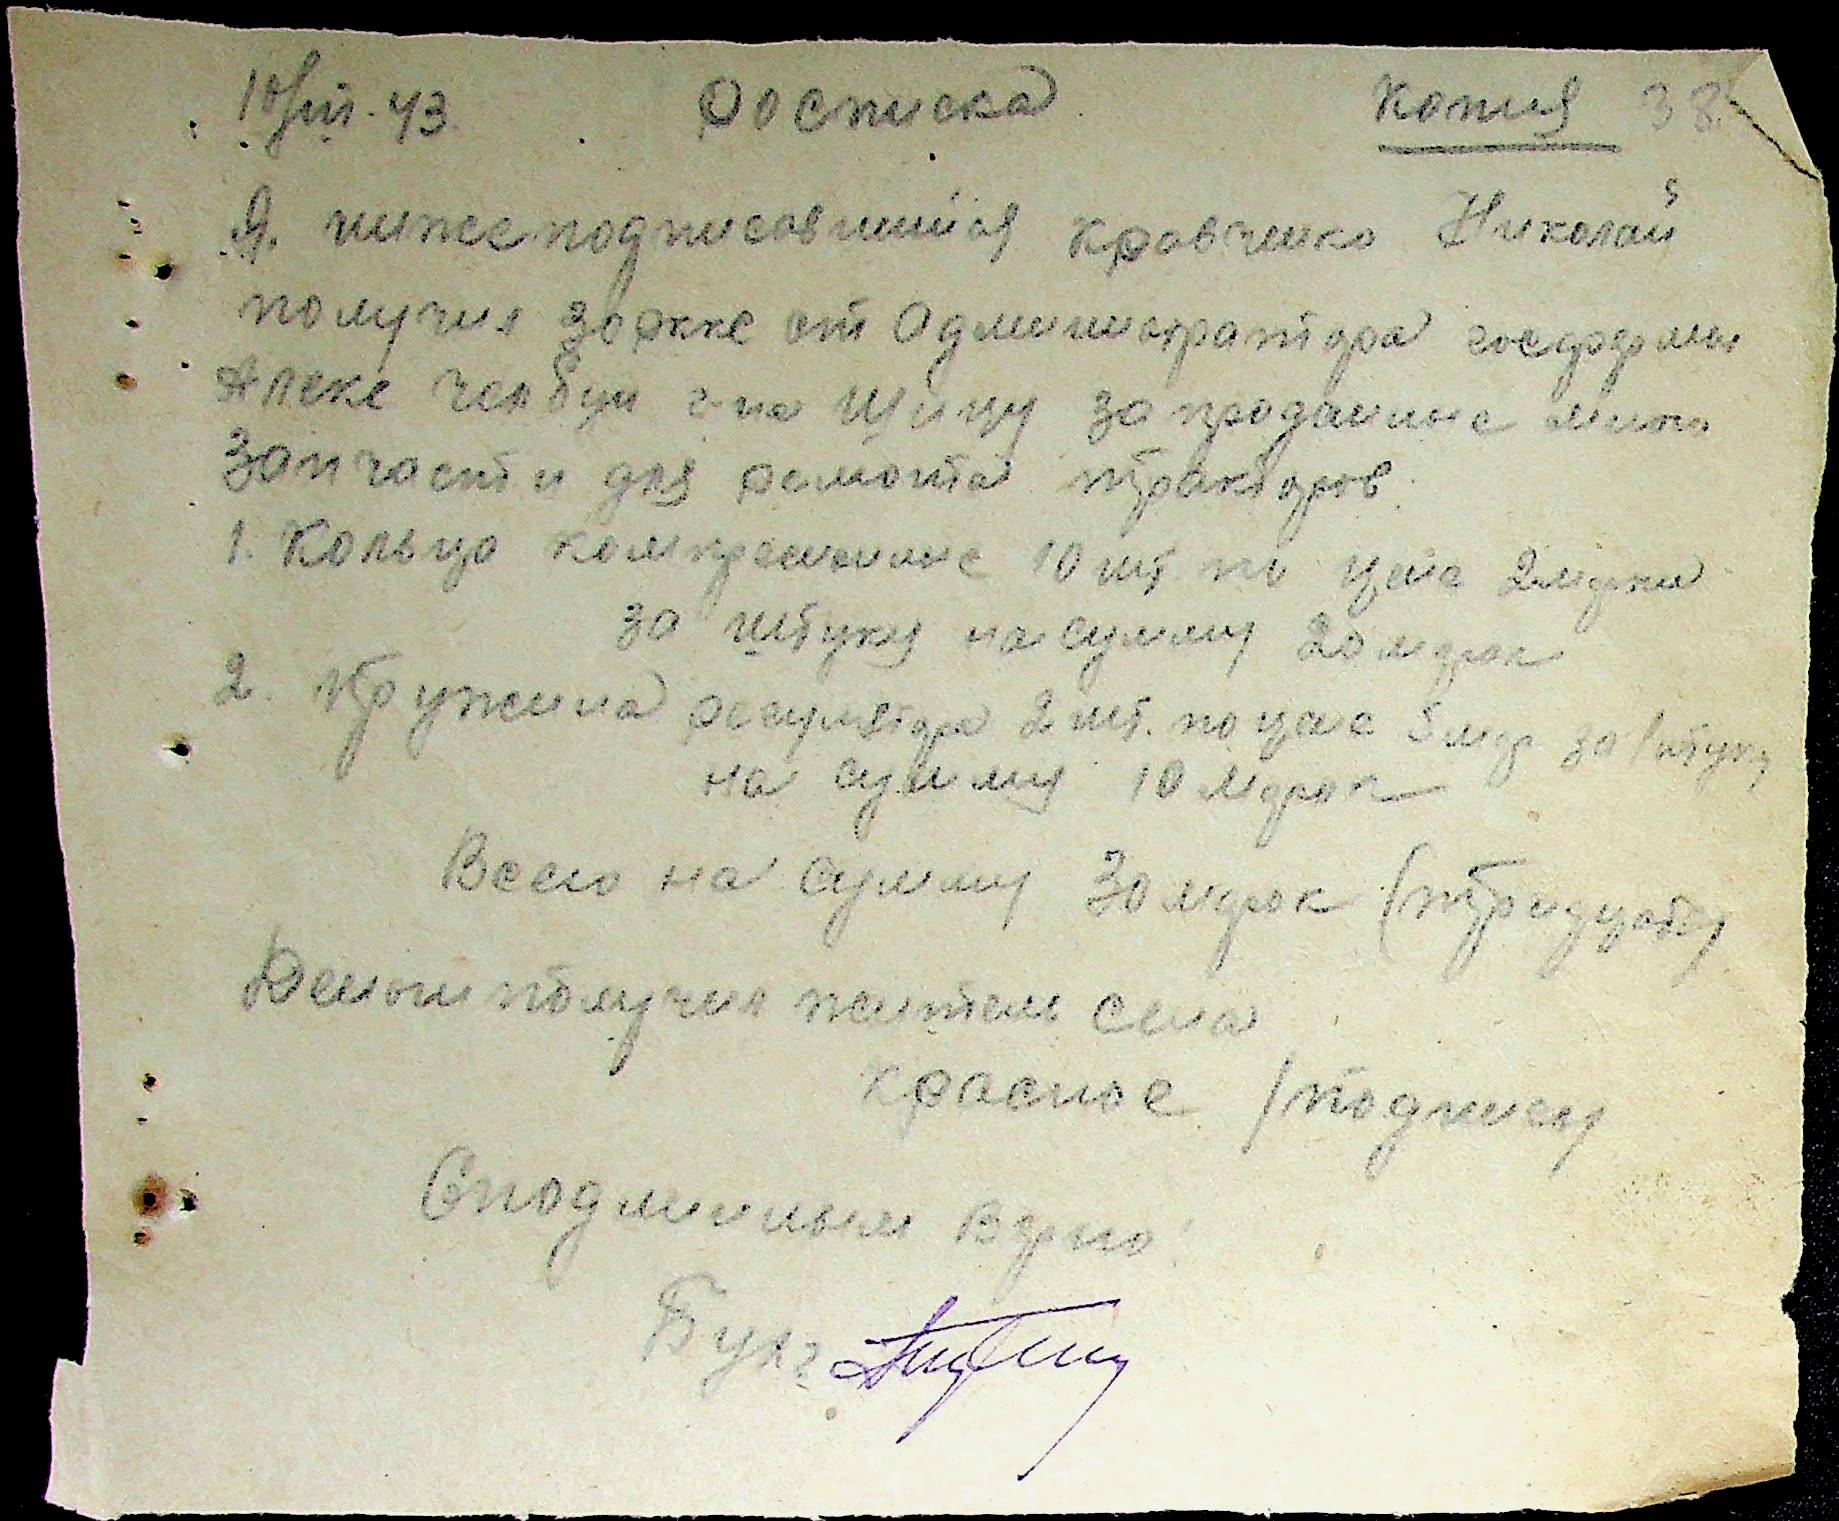 10/VIII-43. Росписка Копия 38.
Я. нижеподписавшийся Кравченко Николай
получил задаток от Администратора госфермы
Алекс г-на за проданные мною
Запчасти для ремонта тракторов.
1. Кольца компресионые 10 шт. по цене 2 марки
за штуку на сумму 20 марок
2. Пружина регулятора 2 шт. по цене 5 мар за штуку
на сумму 10 марок
Всего на сумму 30 марок (тридцать)
Деньги получил житель села
Красное /подпись/
С подлиным верно:
Бухг.